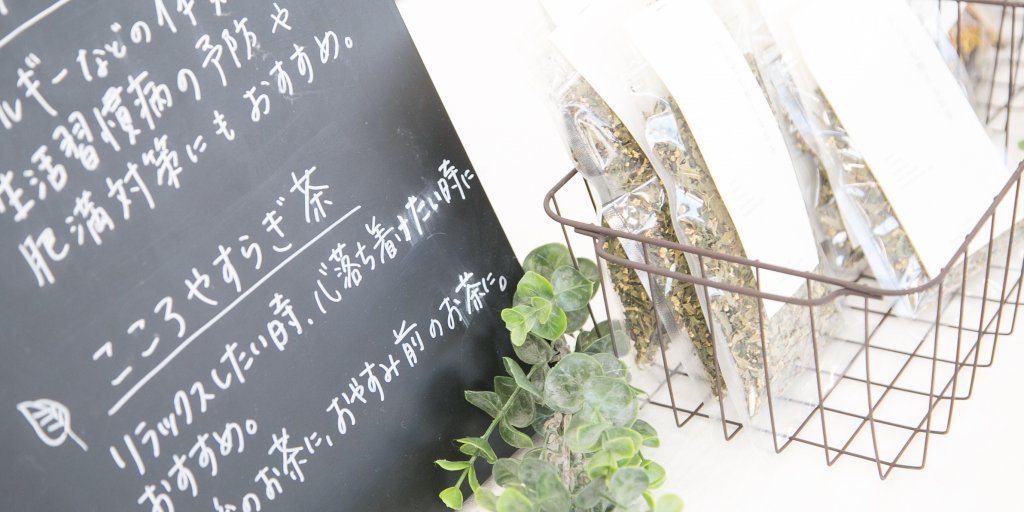 ルギーなどの
生活習慣病の予防や
肥満対策にもおすすめ。
こころやすらぎ茶
リラックスしたい時、心落ち着けたい時に
おすすめ。
のお茶に、おやすみ前のお茶に。